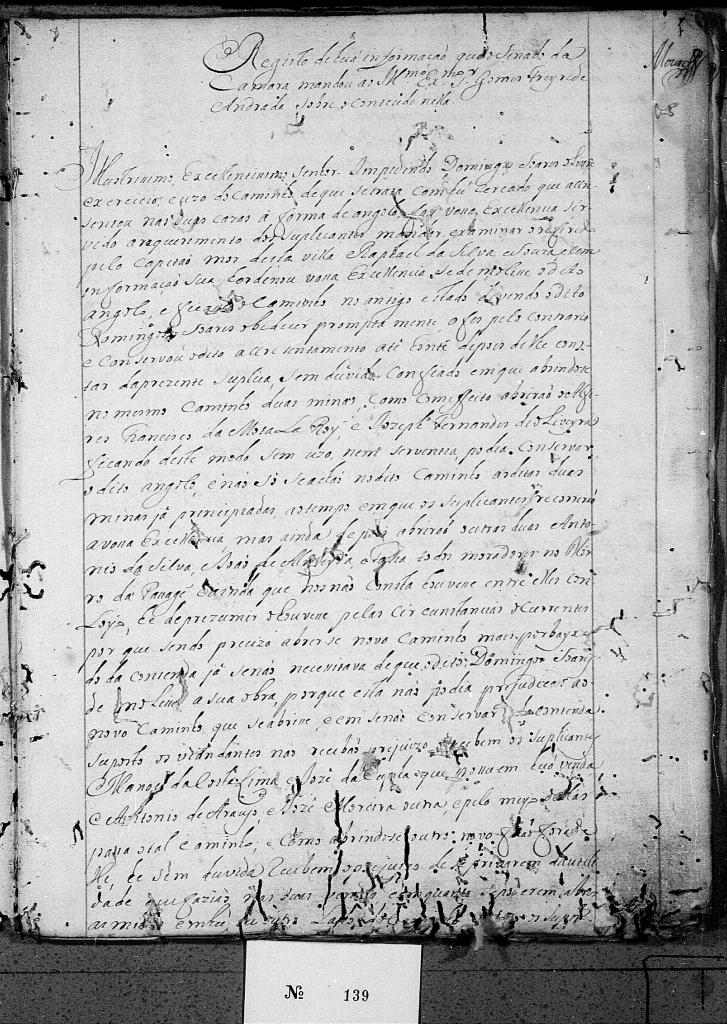 Registo de hua informação que o Senado da
Camara mandou ao Illmo. e Exmo. Sor. Gomes Freyre de
Andrada sobre o contheudo nella
Illustrissimo e Excellentissimo Senhor. Impedindo Domingos Soares o Livre
exercicio, e uzo do caminho, de que se trata com hu cercado que acre-
sentou nas suas cazas á forma de angolo, foy vossa Excellencia ser-
vido a requerimento dos Suplicantes mandar examinar o referido
pelo Capitão mor desta villa Raphael da Silva e Souza e com
informação sua hordenou vossa Excellencia se demolice o dito
angolo, e ficase o Caminho no antigo estado devendo o dito
Domingos Soares obedecer promptamente, o fes pelo contrario
e conservou o dito acresentamento até honte depois de lhe cons-
tar da prezente suplica, sem duvida confiado em que abrindose
no mesmo caminho duas minas, como com effeito abrirão o Alfe-
res Francisco da Mota La Roy, e Joseph Fernandes de Oliveyra
ficando deste modo sem uzo, nem serventia, podia conservar
o dito angolo, e não só se achão no dito caminho as ditas duas
minas já principiadas ao tempo em que os Suplicantes recorrerão
a vossa Excellencia, mas ainda depois abrirão outras duas Anto-
nio da Silva, e João de Almeyda, e todos moradores no Mor-
ro da Passage e ainda que nos não consta houvese entre elles con-
Loyo, he de prezumir o houvese pelas circunstancias ocurrentes
por que sendo precizo abrir-se novo caminho mais por bayxo
do da contenda já senão necessitava de que o dito Domingos Soares
demolise a sua obra, porque esta não podia prejudicar ao
novo caminho que se abrise, e em senão conservar o da contenda
suposto os viandantes não recebão prejuizo, recebem os suplicantes
Manoel da Costa Lima, e José da Cunha que possuem huá venda,
e Antonio de Araujo, e José Moreira outra, e pelo meyo dellas
passa o tal caminho, e como abrindose outro novo fora
He, de sem duvida recebem o prejuizo de se privarem da utili-
dade que fazião nas duas vendas
as minas e em hu e outro Lado
Nº 139